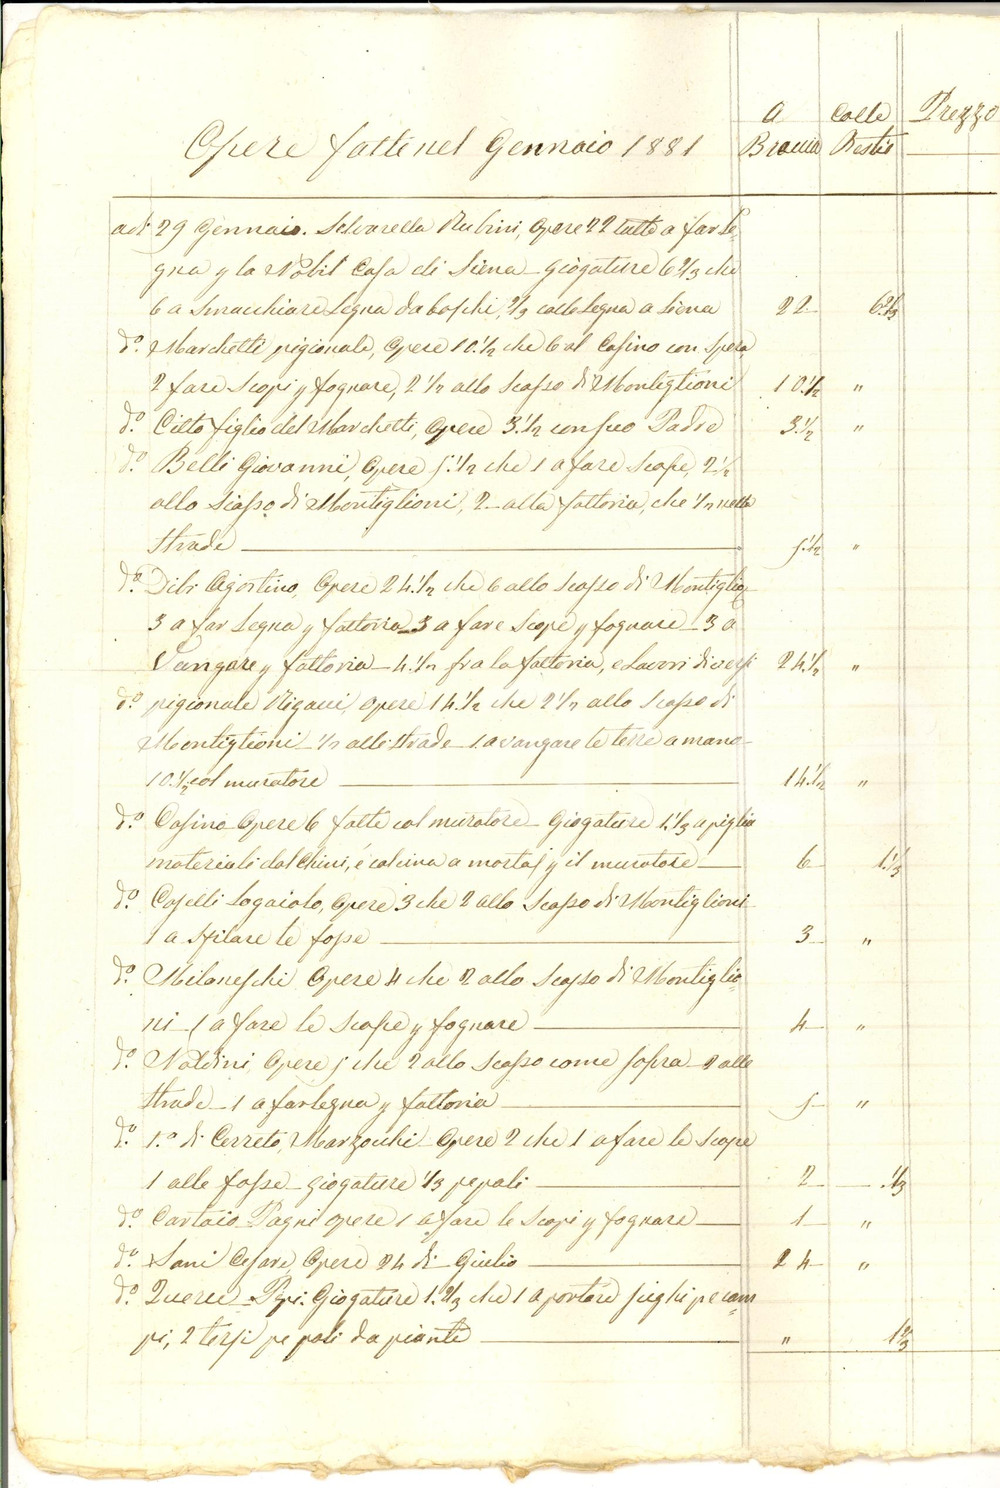 A Colle Prezzo
Opere fatte nel Gennaio 1881 Braccia Bestie
adi 29 Gennaio. Selvarella Rubini, Opere 22 tutte a far le-
gna p la Nobil Casa di Siena _ giogature 6 2/3 che
6 a smacchiare Legna da boschi, 2/3 colle Legna a Siena 22 6 2/3
do. Marchetti pigionale, Opere 10.1/2 che 6 al Casino con Spesa
2 fare Scopi p fognare, 2 1/2 allo Scasso di Montiglioni 10.1/2 "
do. figlio del Marchetti, Opere 3.1/2 con suo Padre 3.1/2 "
do. Belli Giovanni, Opere 5.1/2 che 1 a fare Scope, 2 1/2
allo Scasso di Montiglioni, 2 _ alla fattoria, che 1/2 nelle
Strade 5.1/2 "
do. Dibi Agostino, Opere 24.1/2 che 6 allo Scasso di Montiglio
3 a far Legna p fattoria _ 3 a fare Scope p fognare _ 3 a
Vangare p fattoria _ 4.1/2 fra la fattoria, e Lavori diversi 24.1/2 "
do. pigionale Rigacci, Opere 14.1/2 che 2 1/2 allo Scasso di
Montiglioni _ 1/2 alle Strade _ 1 a vangare le terre a mano
10.1/2 col muratore 14.1/2 "
do. Casino Opere 6 fatte col muratore _ Giogature 1.1/3 a piglia
materiali dal Chiui, e calcina a p il muratore 6 1.1/3
do. Caselli Logaiolo, Opere 3 che 2 allo Scasso di Montiglioni
1 a Spilare le fosse 3 "
do. Milaneschi Opere 4 che 2 allo Scasso di Montiglio-
ni _ 1 a fare le Scope p fognare 4 "
do. Naldini, Opere 5 che 2 allo Scasso come sopra _ 2 alle
Strade _ 1 a far Legna p fattoria 5 "
do. 1.o di Cerreto, Marzocchi _ Opere 2 che 1 a fare le Scope
1 alle fosse _ giogature 1/3 pe pali 2 .1/3
do. Cartaio Pagni opere 1 a fare le Scopi p fognare 1 "
do. Sani Cesare, Opere 24 di Giulio 24 "
do. Querce _ Giogature 1.2/3 che 1 a portare pe cam=
pi, 2 terzi pe pali da piante " 1 2/3